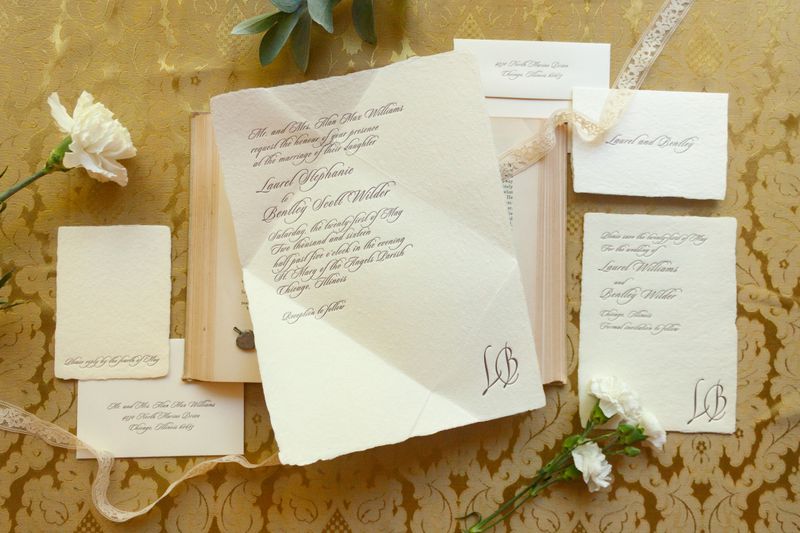 Mr. and Mrs. Alan Max Williams
request the honour of your presence
at the marriage of their daughter
Laurel Stephanie
to
Bentley Scott Wilder
Saturday, the twenty first of May
Two thousand and sixteen
half past five o'clock in the evening
St. Mary of the Angels Parish
Chicago, Illinois
Reception to follow
LB
North Marion Drive
Chicago, Illinois
Laurel and Bentley
Please save the twenty first of May
For the wedding of
Laurel Williams
and
Bentley Wilder
Chicago, Illinois
Formal invitation to follow
LB
Please reply by the fourth of May
Mr. and Mrs. Alan Max Williams
North Marion Drive
Chicago, Illinois